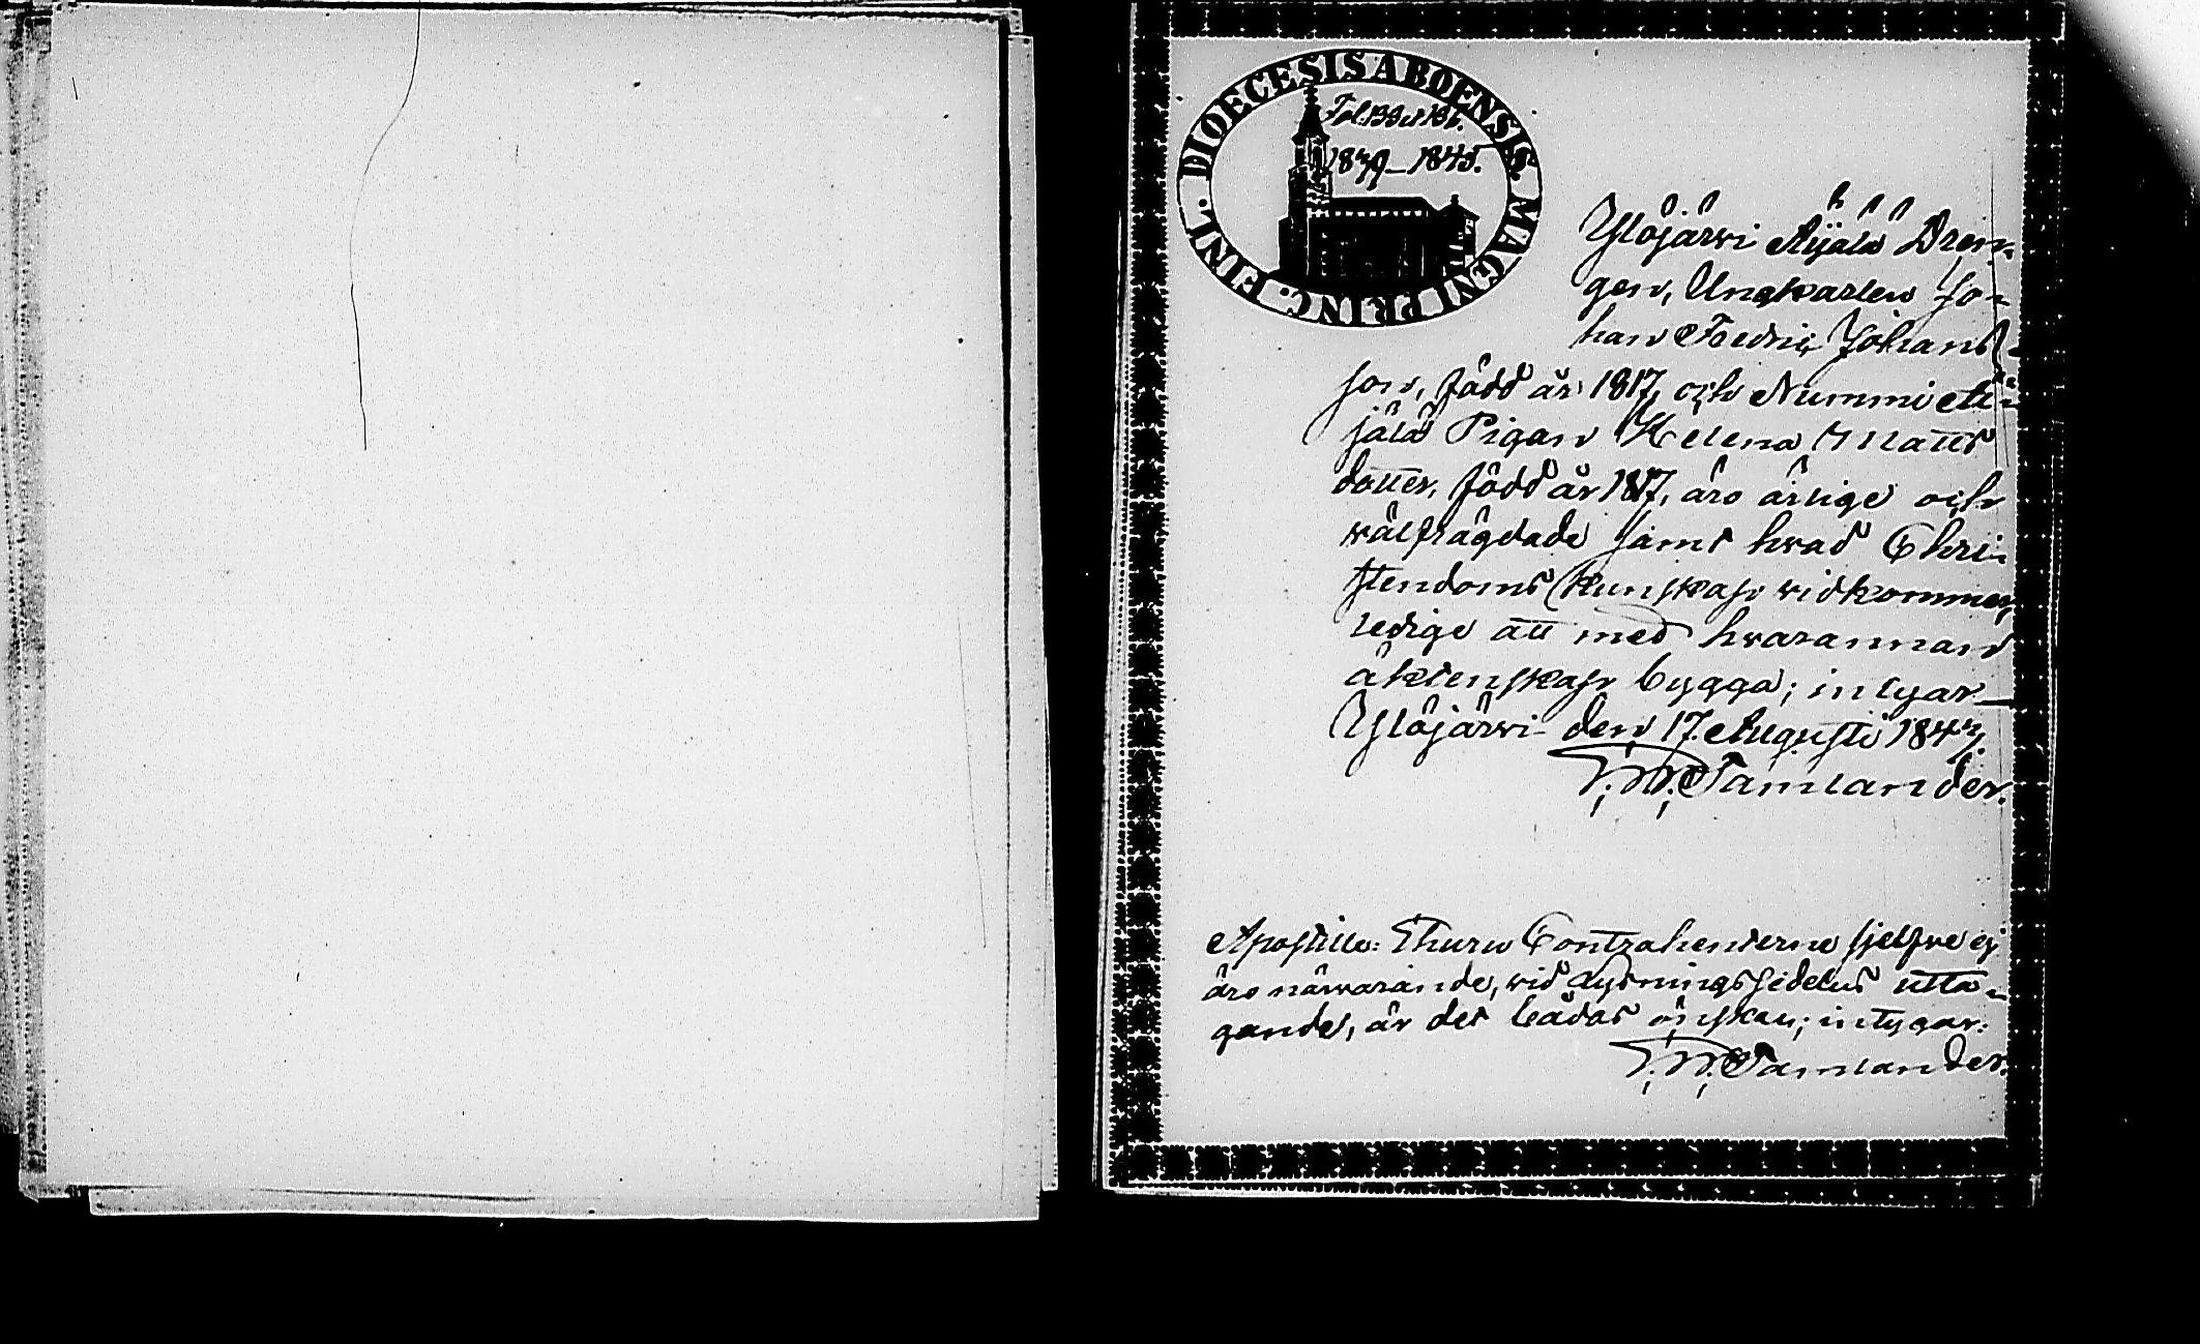 DIOECESIS ABOENSIS. MAGNI PRINC. FINL.
1839–1845.
Ylöjärvi Äijälä Drän-
gen, Ungkarlen Jo-
han Fredric Johans-
son, född år 1817, och Nummi Äi-
jälä Pigan Helena Matts
dotter, född år 1817, äro ärlige och
wälfrägdade samt hvad Chri-
stendoms kunskap widkommer,
ledige att med hwarannan
äktenskap bygga; intygar
Ylöjärvi den 17. Augusti 1843.
Tamlander.
Apostille: Ehuru Contrahenterne sjelfve ej
äro närwarande, wid Lysningssedelns utta-
gande, är det bådas önskan; intygar:
Tamlander.